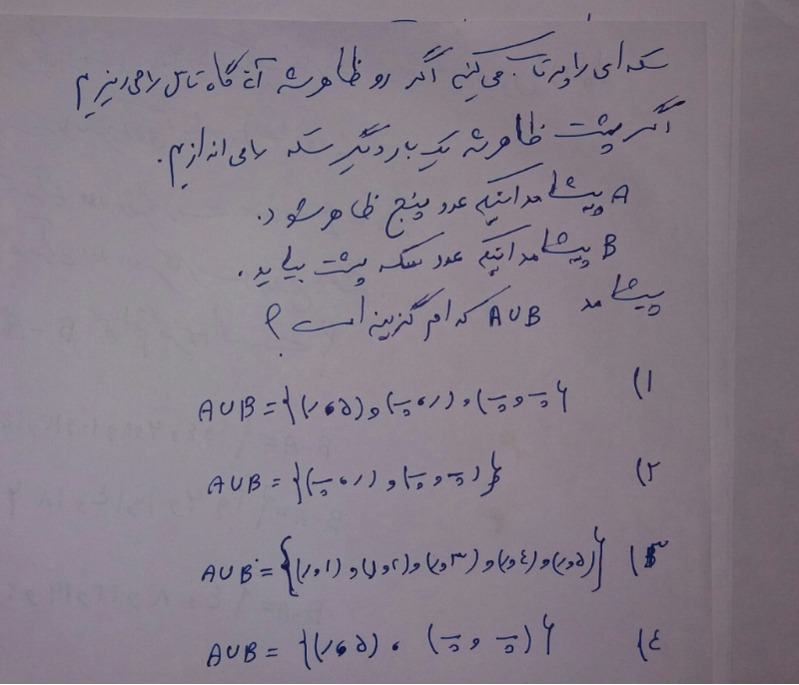 سکه ای را پرتاب می کنیم اگر رو ظاهر شد آن گاه تاس را می ریزیم
اگر پشت ظاهر شد یک بار دیگر سکه را می اندازیم.
A پیشامد اینکه عدد پنج ظاهر شود.
B پیشامد اینکه عدد سکه پشت بیاید.
پیشامد A∪B کدام گزینه است؟
۱) A∪B = {(ر،۵) و (ر،پ) و (پ و پ)}
۲) A∪B = {(ر،پ) و (پ و پ)}
۳) A∪B = {(ر،۱) و (ر،۲) و (ر،۳) و (ر،٤) و (ر،۵)}
٤) A∪B = {(ر،۵) ، (پ و پ)}